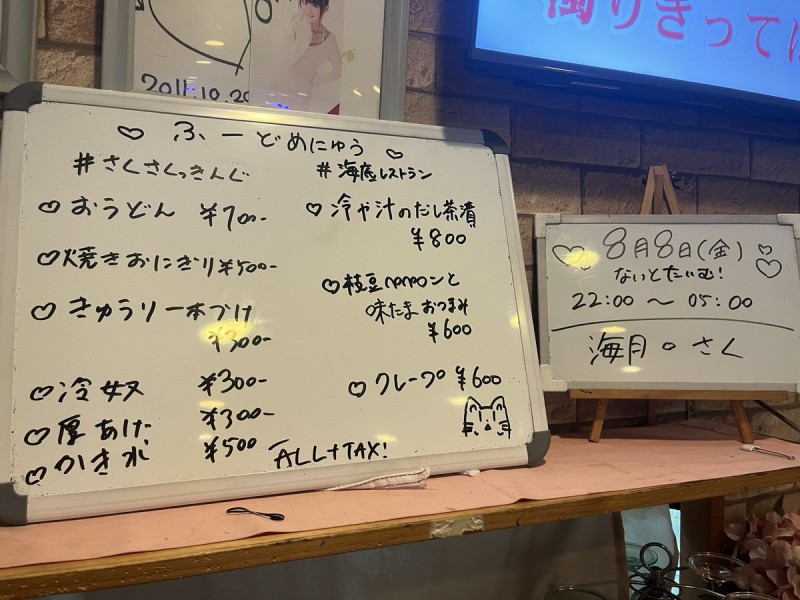 2011.10.20
濁りきっては
♡ ふーどめにゅう ♡
#さくさくっきんぐ
♡ おうどん ¥700-
♡ 焼きおにぎり ¥500-
♡ きゅうり一本づけ
¥300-
♡ 冷奴 ¥300-
♡ 厚あげ ¥300-
♡ かき氷 ¥500
#海底レストラン
♡ 冷や汁のだし茶漬
¥800
♡ 枝豆ペペロンと
味たま おつまみ
¥600
♡ クレープ ¥600
ALL+TAX!
♡ 8月8日(金) ♡
ないとたいむ!
22:00 〜 05:00
海月 。さく